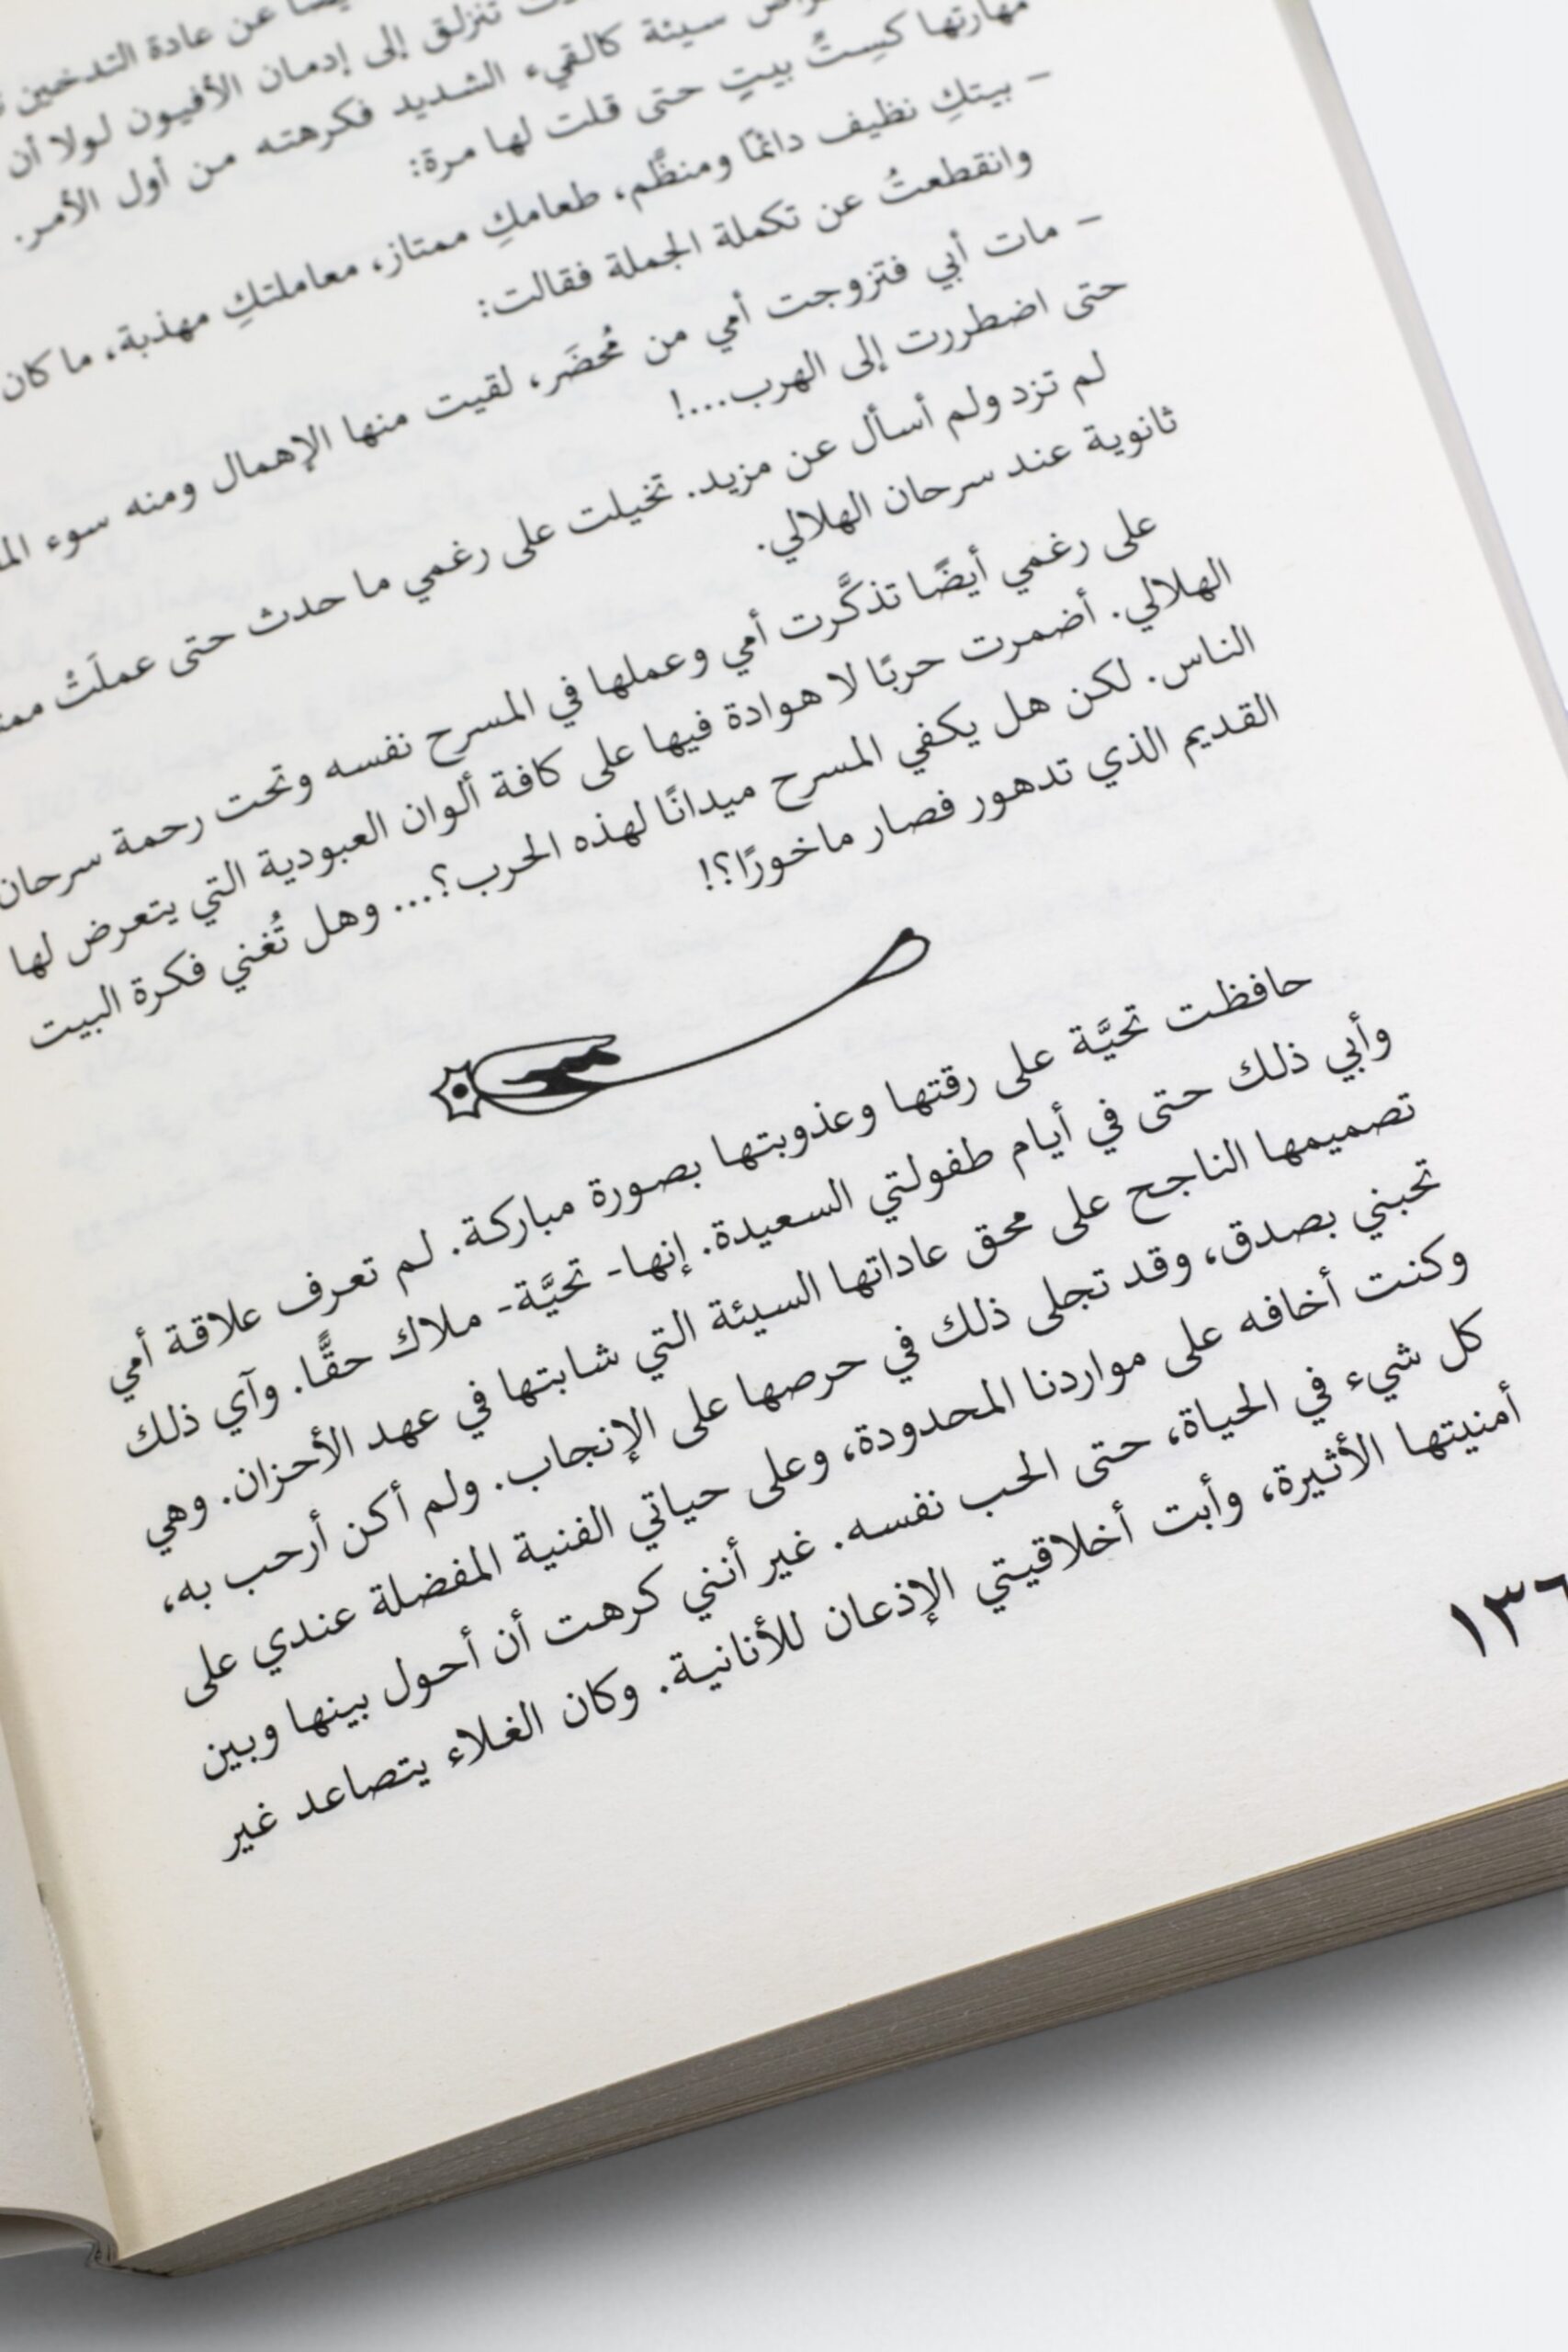 عن عادة التدخين
تنزلق إلى إدمان الأفيون لولا أن
سيئة كالقيء الشديد فكرهته من أول الأمر.
مهارتها كستِّ بيتٍ حتى قلت لها مرة:
– بيتكِ نظيف دائمًا ومنظَّم، طعامكِ ممتاز، معاملتكِ مهذبة، ما كان
وانقطعتُ عن تكملة الجملة فقالت:
– مات أبي فتزوجت أمي من مُحضَر، لقيت منها الإهمال ومنه سوء
حتى اضطررت إلى الهرب...!
لم تزد ولم أسأل عن مزيد. تخيلت على رغمي ما حدث حتى عملَتْ
ثانوية عند سرحان الهلالي.
على رغمي أيضًا تذكَّرت أمي وعملها في المسرح نفسه وتحت رحمة سرحان
الهلالي. أضمرت حربًا لا هوادة فيها على كافة ألوان العبودية التي يتعرض لها
الناس. لكن هل يكفي المسرح ميدانًا لهذه الحرب؟... وهل تُغني فكرة البيت
القديم الذي تدهور فصار ماخورًا؟!
حافظت تحيَّة على رقتها وعذوبتها بصورة مباركة. لم تعرف علاقة أمي
وأبي ذلك حتى في أيام طفولتي السعيدة. إنها- تحيَّة- ملاك حقًّا. وآي ذلك
تصميمها الناجح على محق عاداتها السيئة التي شابتها في عهد الأحزان. وهي
تحبني بصدق، وقد تجلى ذلك في حرصها على الإنجاب. ولم أكن أرحب به،
وكنت أخافه على مواردنا المحدودة، وعلى حياتي الفنية المفضلة عندي على
كل شيء في الحياة، حتى الحب نفسه. غير أنني كرهت أن أحول بينها وبين
أمنيتها الأثيرة، وأبت أخلاقيتي الإذعان للأنانية. وكان الغلاء يتصاعد غير
١٣٦